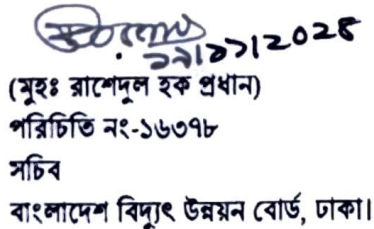 ১২/১১/2024
(মুহঃ রাশেদুল হক প্রধান)
পরিচিতি নং-১৬৩৭৮
সচিব
বাংলাদেশ বিদ্যুৎ উন্নয়ন বোর্ড, ঢাকা।